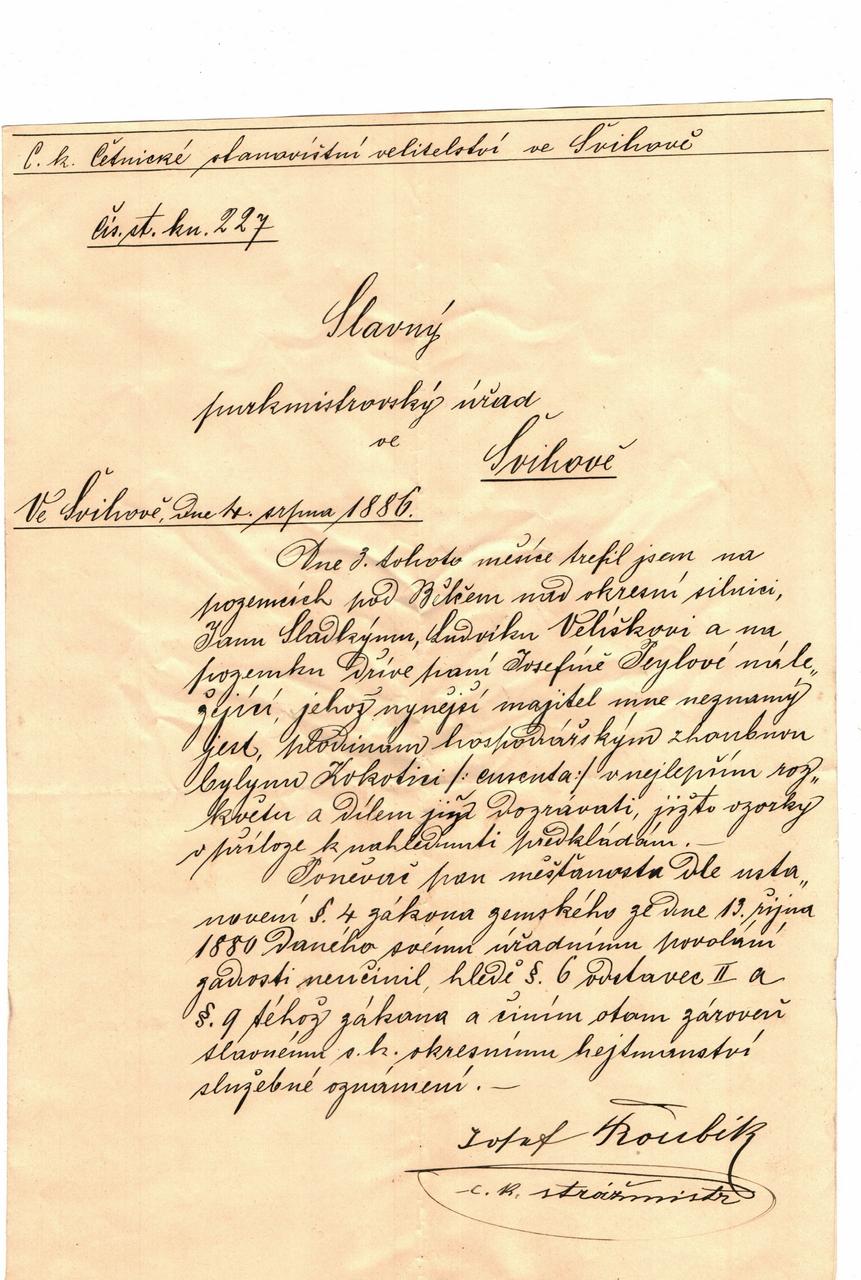 C. k. četnické stanovištní velitelství ve Švihově
čís. st. kn. 227
Slavný
purkmistrovský úřad
ve
Švihově
Ve Švihově, dne 4. srpna 1886.
Dne 3. tohoto měsíce trefil jsem na
pozemcích pod Bělčem nad okresní silnici,
Janu Sladkýmu, Ludvíku Velíškovi a na
pozemku dříve paní Josefíně Peylové nále„
žející, jehož nynější majitel mne neznamý
jest, plodinám hospodářským zhoubnou
bylynu Kokotici /: cuscuta :/ v nejlepším roz„
květu a dílem již dozrávati, jižto vzorky
v příloze k nahlednutí předkládám. —
Poněvač pan měšťanosta dle usta„
novení §. 4 zákona zemského ze dne 13. října
1880 daného svému úřadnímu povolání
zadosti neučinil, hledě §. 6 odstavec II a
§. 9 téhož zákana a činím otam zároveň
slavnému s. k. okresnímu hejtmanství
služebné oznámení. —
Josef Koubík
c. k. strážmistr